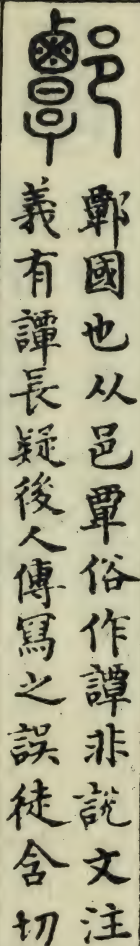 鄲
鄲國也从邑覃俗作譚非說文注
義有譚長疑後人傳寫之誤徒含切